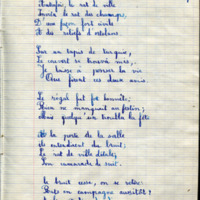 Autrefois, le rat de ville
Invita le rat des champs,
D'une façon fort civile
A des reliefs d'ortolans.
Sur un tapis de Turquie,
Le couvert se trouva mis.
Je laisse à penser la vie
Que firent ces deux amis
Le régal fut fort honnête,
Rien ne manquait au festin;
Mais quelqu'un troubla la fête
A la porte de la salle
ils entendirent du bruit;
Le rat de ville détale;
Son camarade le suit.
Le bruit cesse, on se retire